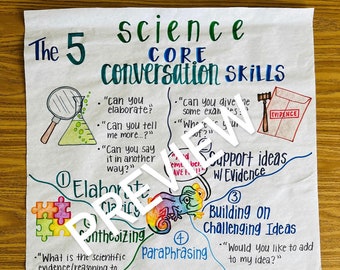 The 5 Science
CORE
conversation SKILLS
• "Can you elaborate?
• "Can you tell me more...?"
• "Can you say it in another way?"
• "Can you give me some examples?"
• "Where is
EVIDENCE
Support ideas w/Evidence
① Elaborate
Synthesizing
③ Building on
Challenging Ideas
④ Paraphrasing
• "What is the scientific evidence/reasoning to
• "Would you like to add to my idea?"
PREVIEW